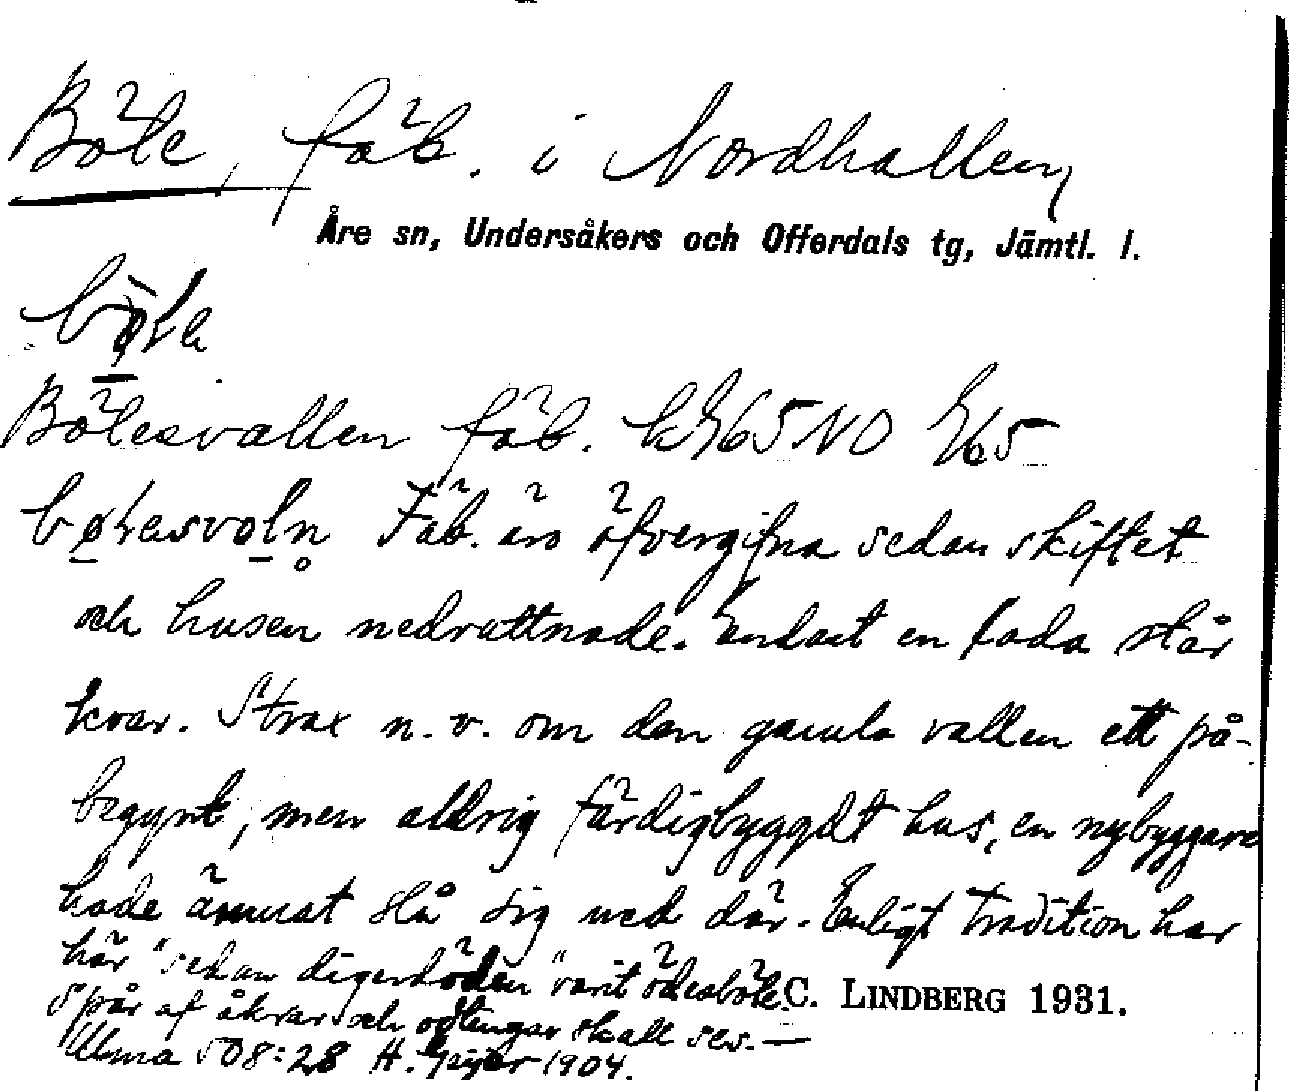 Böle, fäb. i Nordhallen,
Åre sn, Undersåkers och Offerdals tg, Jämtl. l.
Bölesvallen fäb. NO
Fäb. äro öfvergifna sedan skiftet
och husen nedruttnade. Endast en lada står
kvar. Strax n.v. om den gamla vallen ett på-
begynt, men aldrig färdigbyggdt hus, en nybyggare
hade ämnat slå sig ned där. Enligt tradition har
här "sedan digerdöden" varit ödesböle. C. LINDBERG 1931.
Spår af åkrar och skall ses. —
Ulma 508:28 H. Geijer 1904.